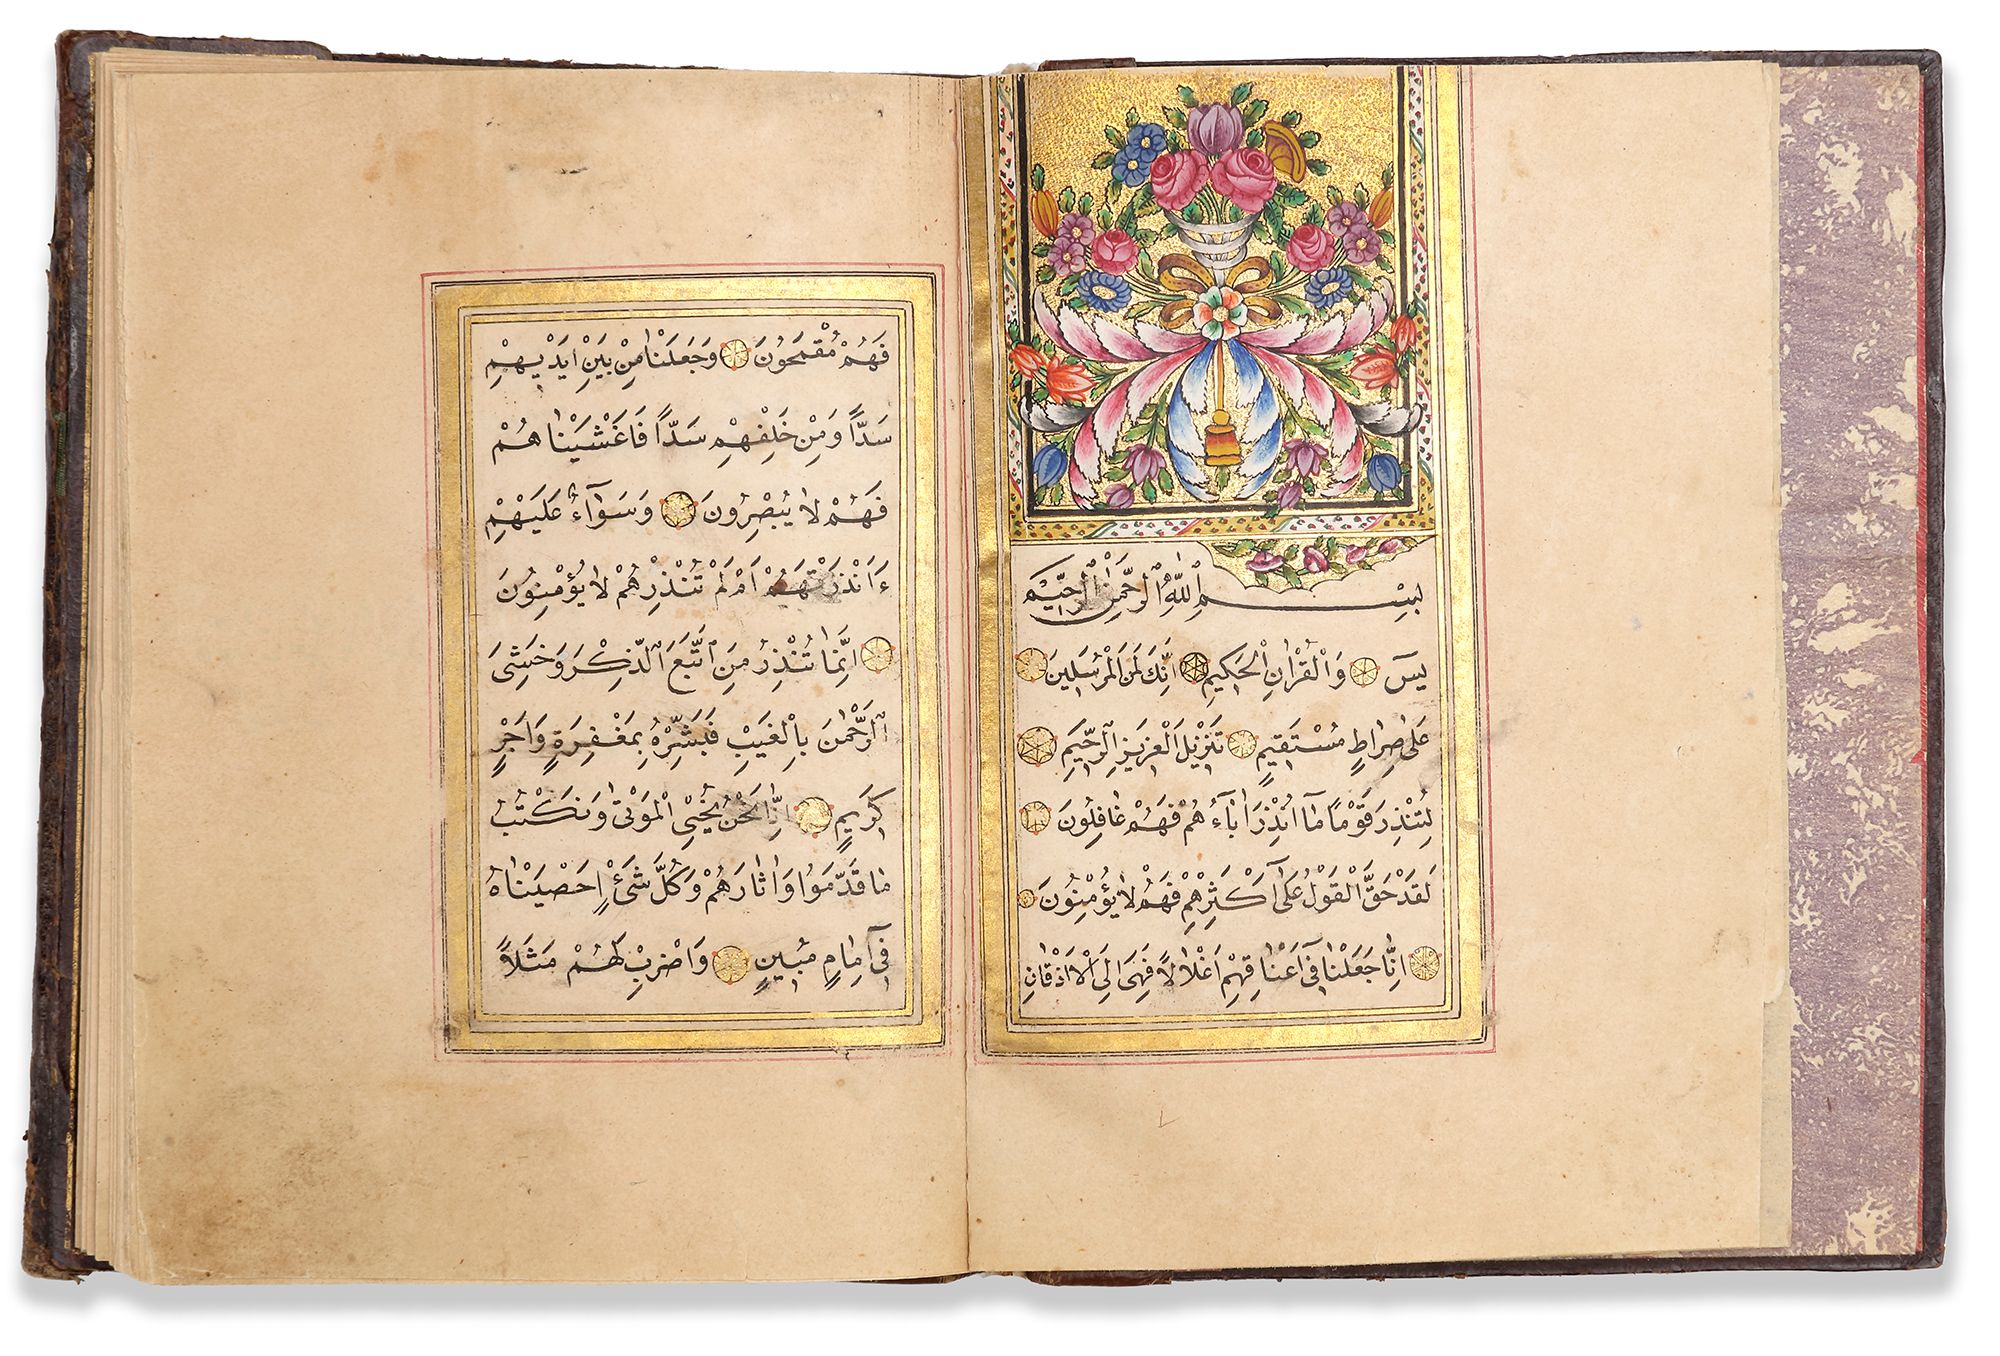 بِسْمِ ٱللَّهِ ٱلرَّحْمٰنِ ٱلرَّحِيمِ
يٰسۤ وَالْقُرْاٰنِ الْحَكِيمِ اِنَّكَ لَمِنَ الْمُرْسَلِينَ
عَلٰى صِرَاطٍ مُسْتَقِيمٍ تَنْزِيلَ الْعَزِيزِ الرَّحِيمِ
لِتُنْذِرَ قَوْمًا مَٓا اُنْذِرَ اٰبَٓاؤُ۬هُمْ فَهُمْ غَافِلُونَ
لَقَدْ حَقَّ الْقَوْلُ عَلٰٓى اَكْثَرِهِمْ فَهُمْ لَا يُؤْمِنُونَ
اِنَّا جَعَلْنَا فِٓى اَعْنَاقِهِمْ اَغْلَالًا فَهِىَ اِلَى الْاَذْقَانِ
فَهُمْ مُقْمَحُونَ وَجَعَلْنَا مِنْ بَيْنِ اَيْدِيهِمْ
سَدًّا وَمِنْ خَلْفِهِمْ سَدًّا فَاَغْشَيْنَاهُمْ
فَهُمْ لَا يُبْصِرُونَ وَسَوَٓاءٌ عَلَيْهِمْ
ءَاَنْذَرْتَهُمْ اَمْ لَمْ تُنْذِرْهُمْ لَا يُؤْمِنُونَ
اِنَّمَا تُنْذِرُ مَنِ ٱتَّبَعَ ٱلذِّكْرَ وَخَشِىَ
ٱلرَّحْمٰنَ بِالْغَيْبِ فَبَشِّرْهُ بِمَغْفِرَةٍ وَاَجْرٍ
كَرِيمٍ اِنَّا نَحْنُ نُحْيِى الْمَوْتٰى وَنَكْتُبُ
مَا قَدَّمُوا وَاٰثَارَهُمْ وَكُلَّ شَىْءٍ اَحْصَيْنَاهُ
فِٓى اِمَامٍ مُبِينٍ وَاضْرِبْ لَهُمْ مَثَلًا